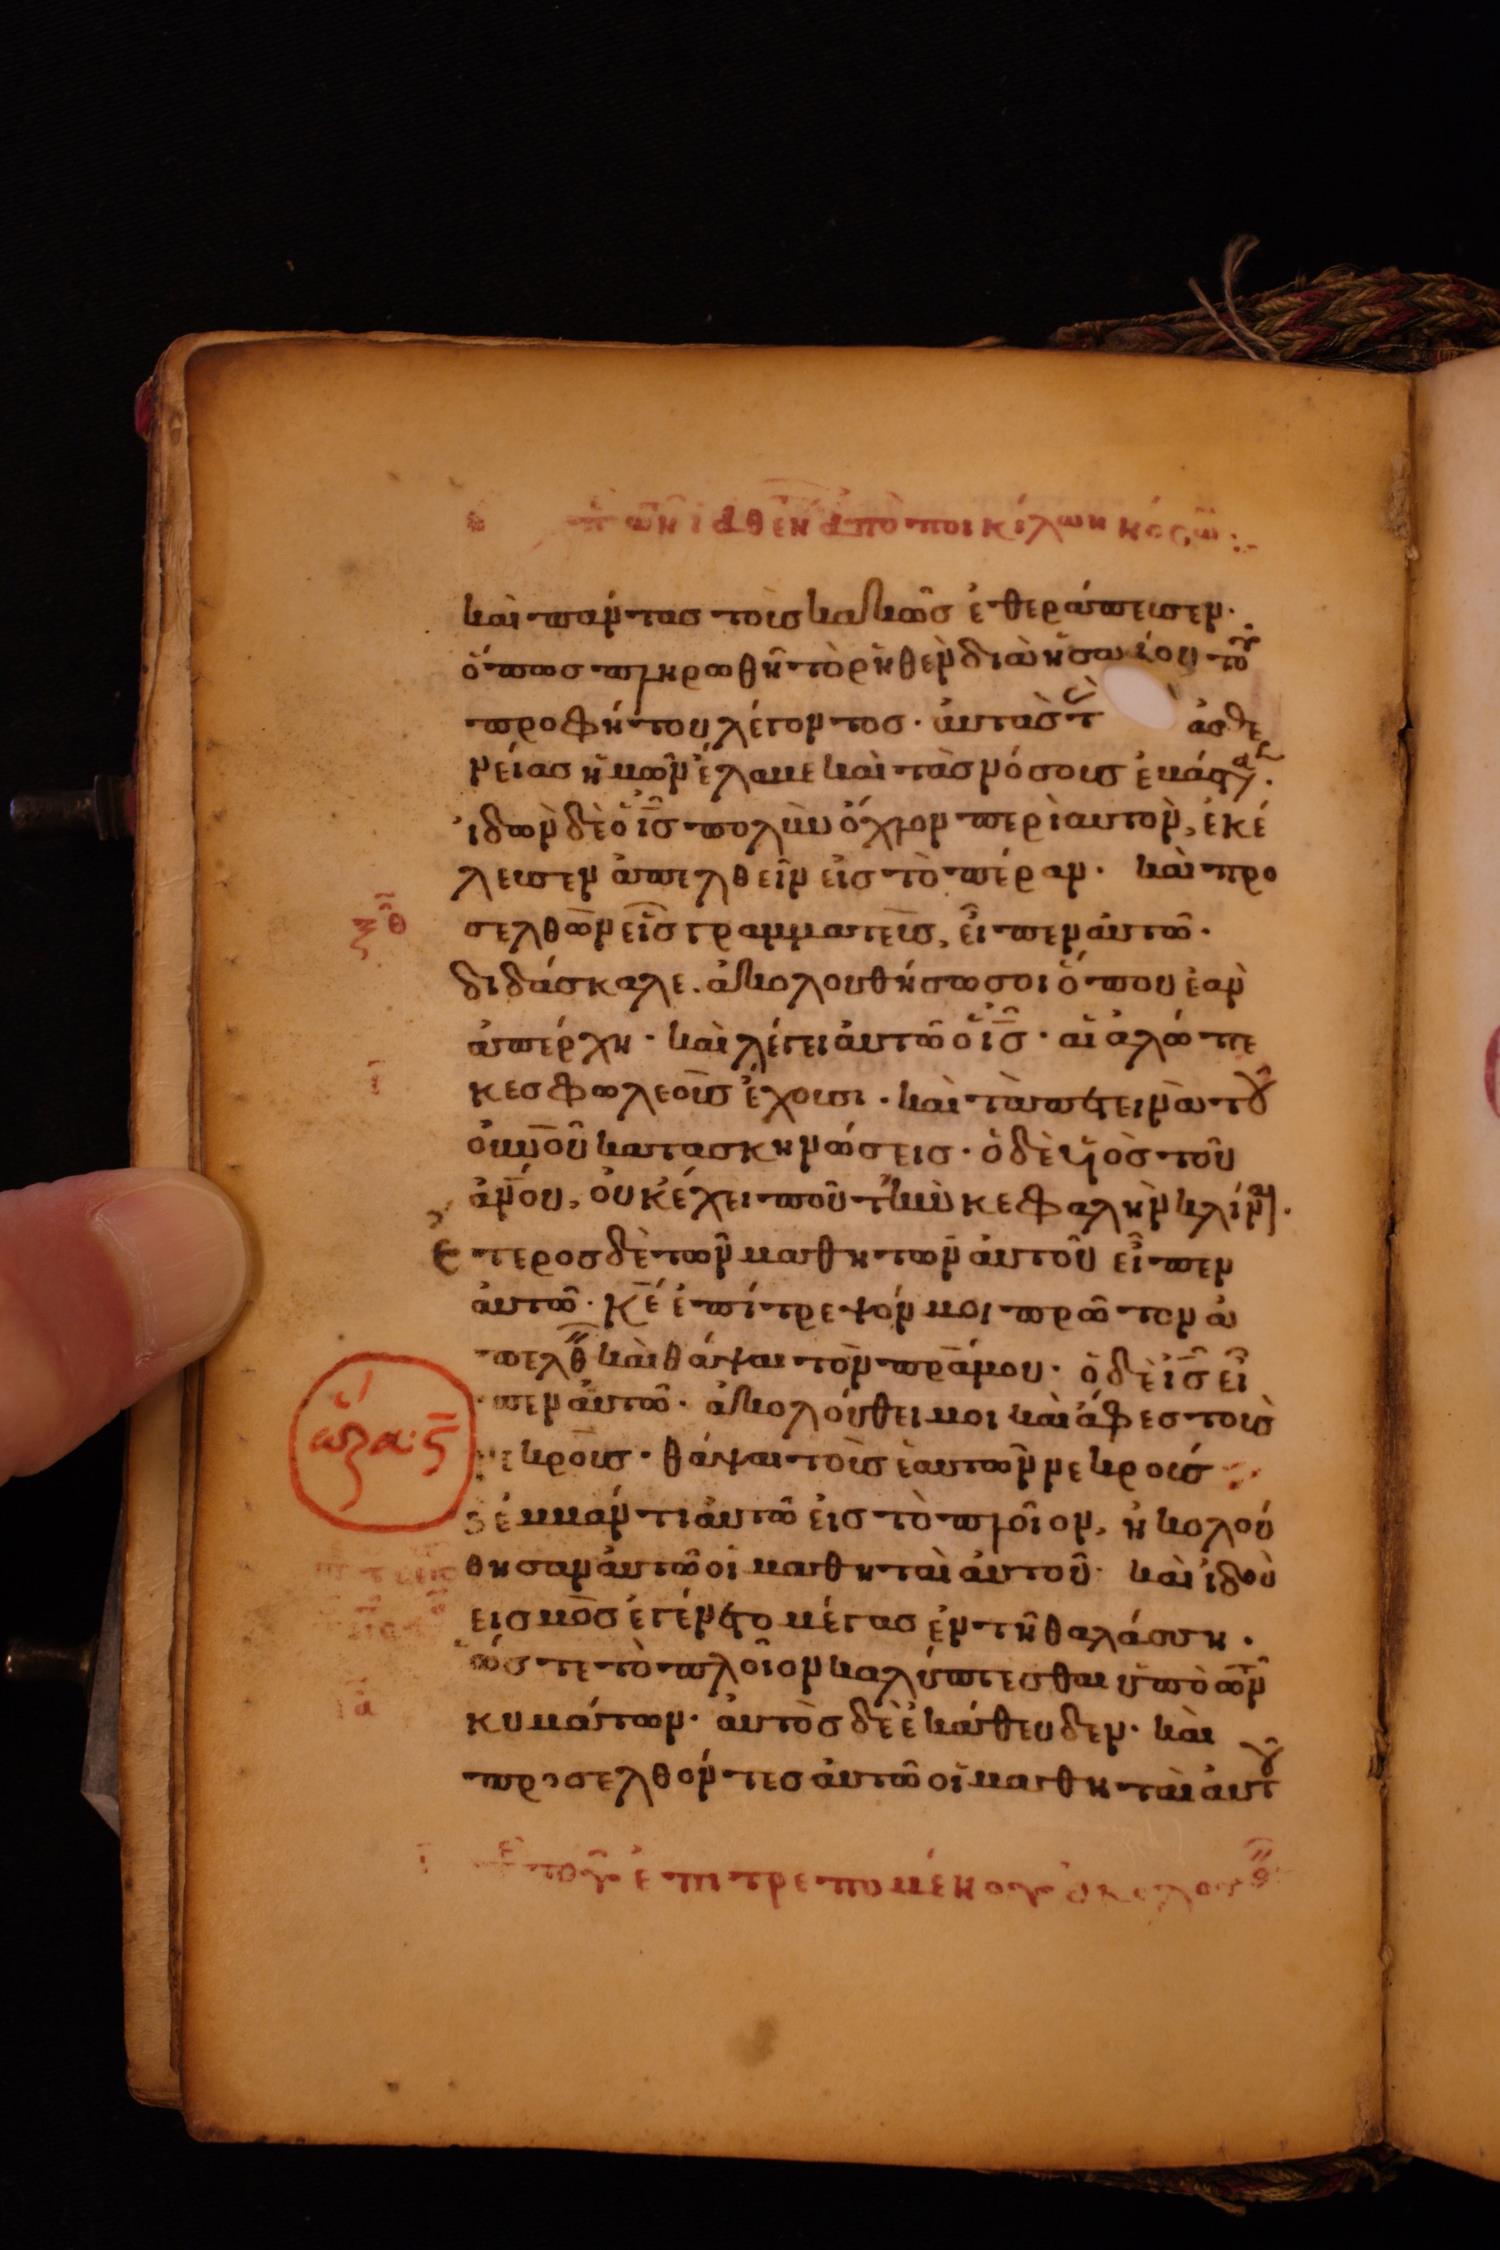 τῶν ἰαθέντων ἀπὸ ποικίλων νόσων:
καὶ πάντας τοὺς κακῶς ἐθεράπευσεν·
ὅπως πληρωθῆ τὸ ῥηθὲν διὰ ἡσαΐου τοῦ
προφήτου λέγοντος· αὐτὸς τὰς ἀσθε
νείας ἡμῶν ἔλαβε καὶ τὰς νόσους ἐβάστασεν·
ἰδὼν δὲ ὁ ἰς πολὺν ὄχλον περὶ αυτὸν, ἐκέ
λευσεν ἀπελθεῖν εἰς τὸ πέραν· καὶ προ
σελθὼν εἷς γραμματεὺς, εἶπεν αὐτῶ·
διδάσκαλε. ἀκολουθήσω σοι ὅπου ἐὰν
ἀπέρχη· καὶ λέγει αὐτῶ ὁ ἰς· αἱ αλώπε
κες φωλεοὺς ἔχουσι· καὶ τὰ πετεινὰ τοῦ
οὐνοῦ κατασκηνώσεις· ὁ δὲ υἱὸς τοῦ
ἀνου, οὐκ ἔχει ποῦ τὴν κεφαλὴν κλίνη·
ἕτερος δὲ τῶν μαθητῶν αὐτοῦ εἶπεν
αὐτῶ· κε ἐπίτρεψόν μοι πρῶτον ἀ
πελθεῖν καὶ θάψαι τὸν πρα μου· ὁ δὲ ἰς εἶ
πεν αὐτῶ· ἀκολούθει μοι καὶ ἄφες τοὺς
νεκροὺς· θάψαι τοὺς ἑαυτῶν νεκρούς
ἐμβάντι αὐτῶ εἰς τὸ πλοῖον, ἠκολού
θησαν αὐτῶ οἱ μαθηταὶ αὐτοῦ· καὶ ἰδοὺ
σεισμὸς ἐγένετο μέγας ἐν τῆ θαλάσση·
ὥστε τὸ πλοῖον καλύπτεσθαι ὑπὸ τῶν
κυμάτων· αὐτὸς δὲ ἐκάθευδεν· καὶ
προσελθόντες αὐτῶ οἱ μαθηταὶ αὐτοῦ
ι τοῦ ἐπιτρεπομένου ἀκολουθεῖν